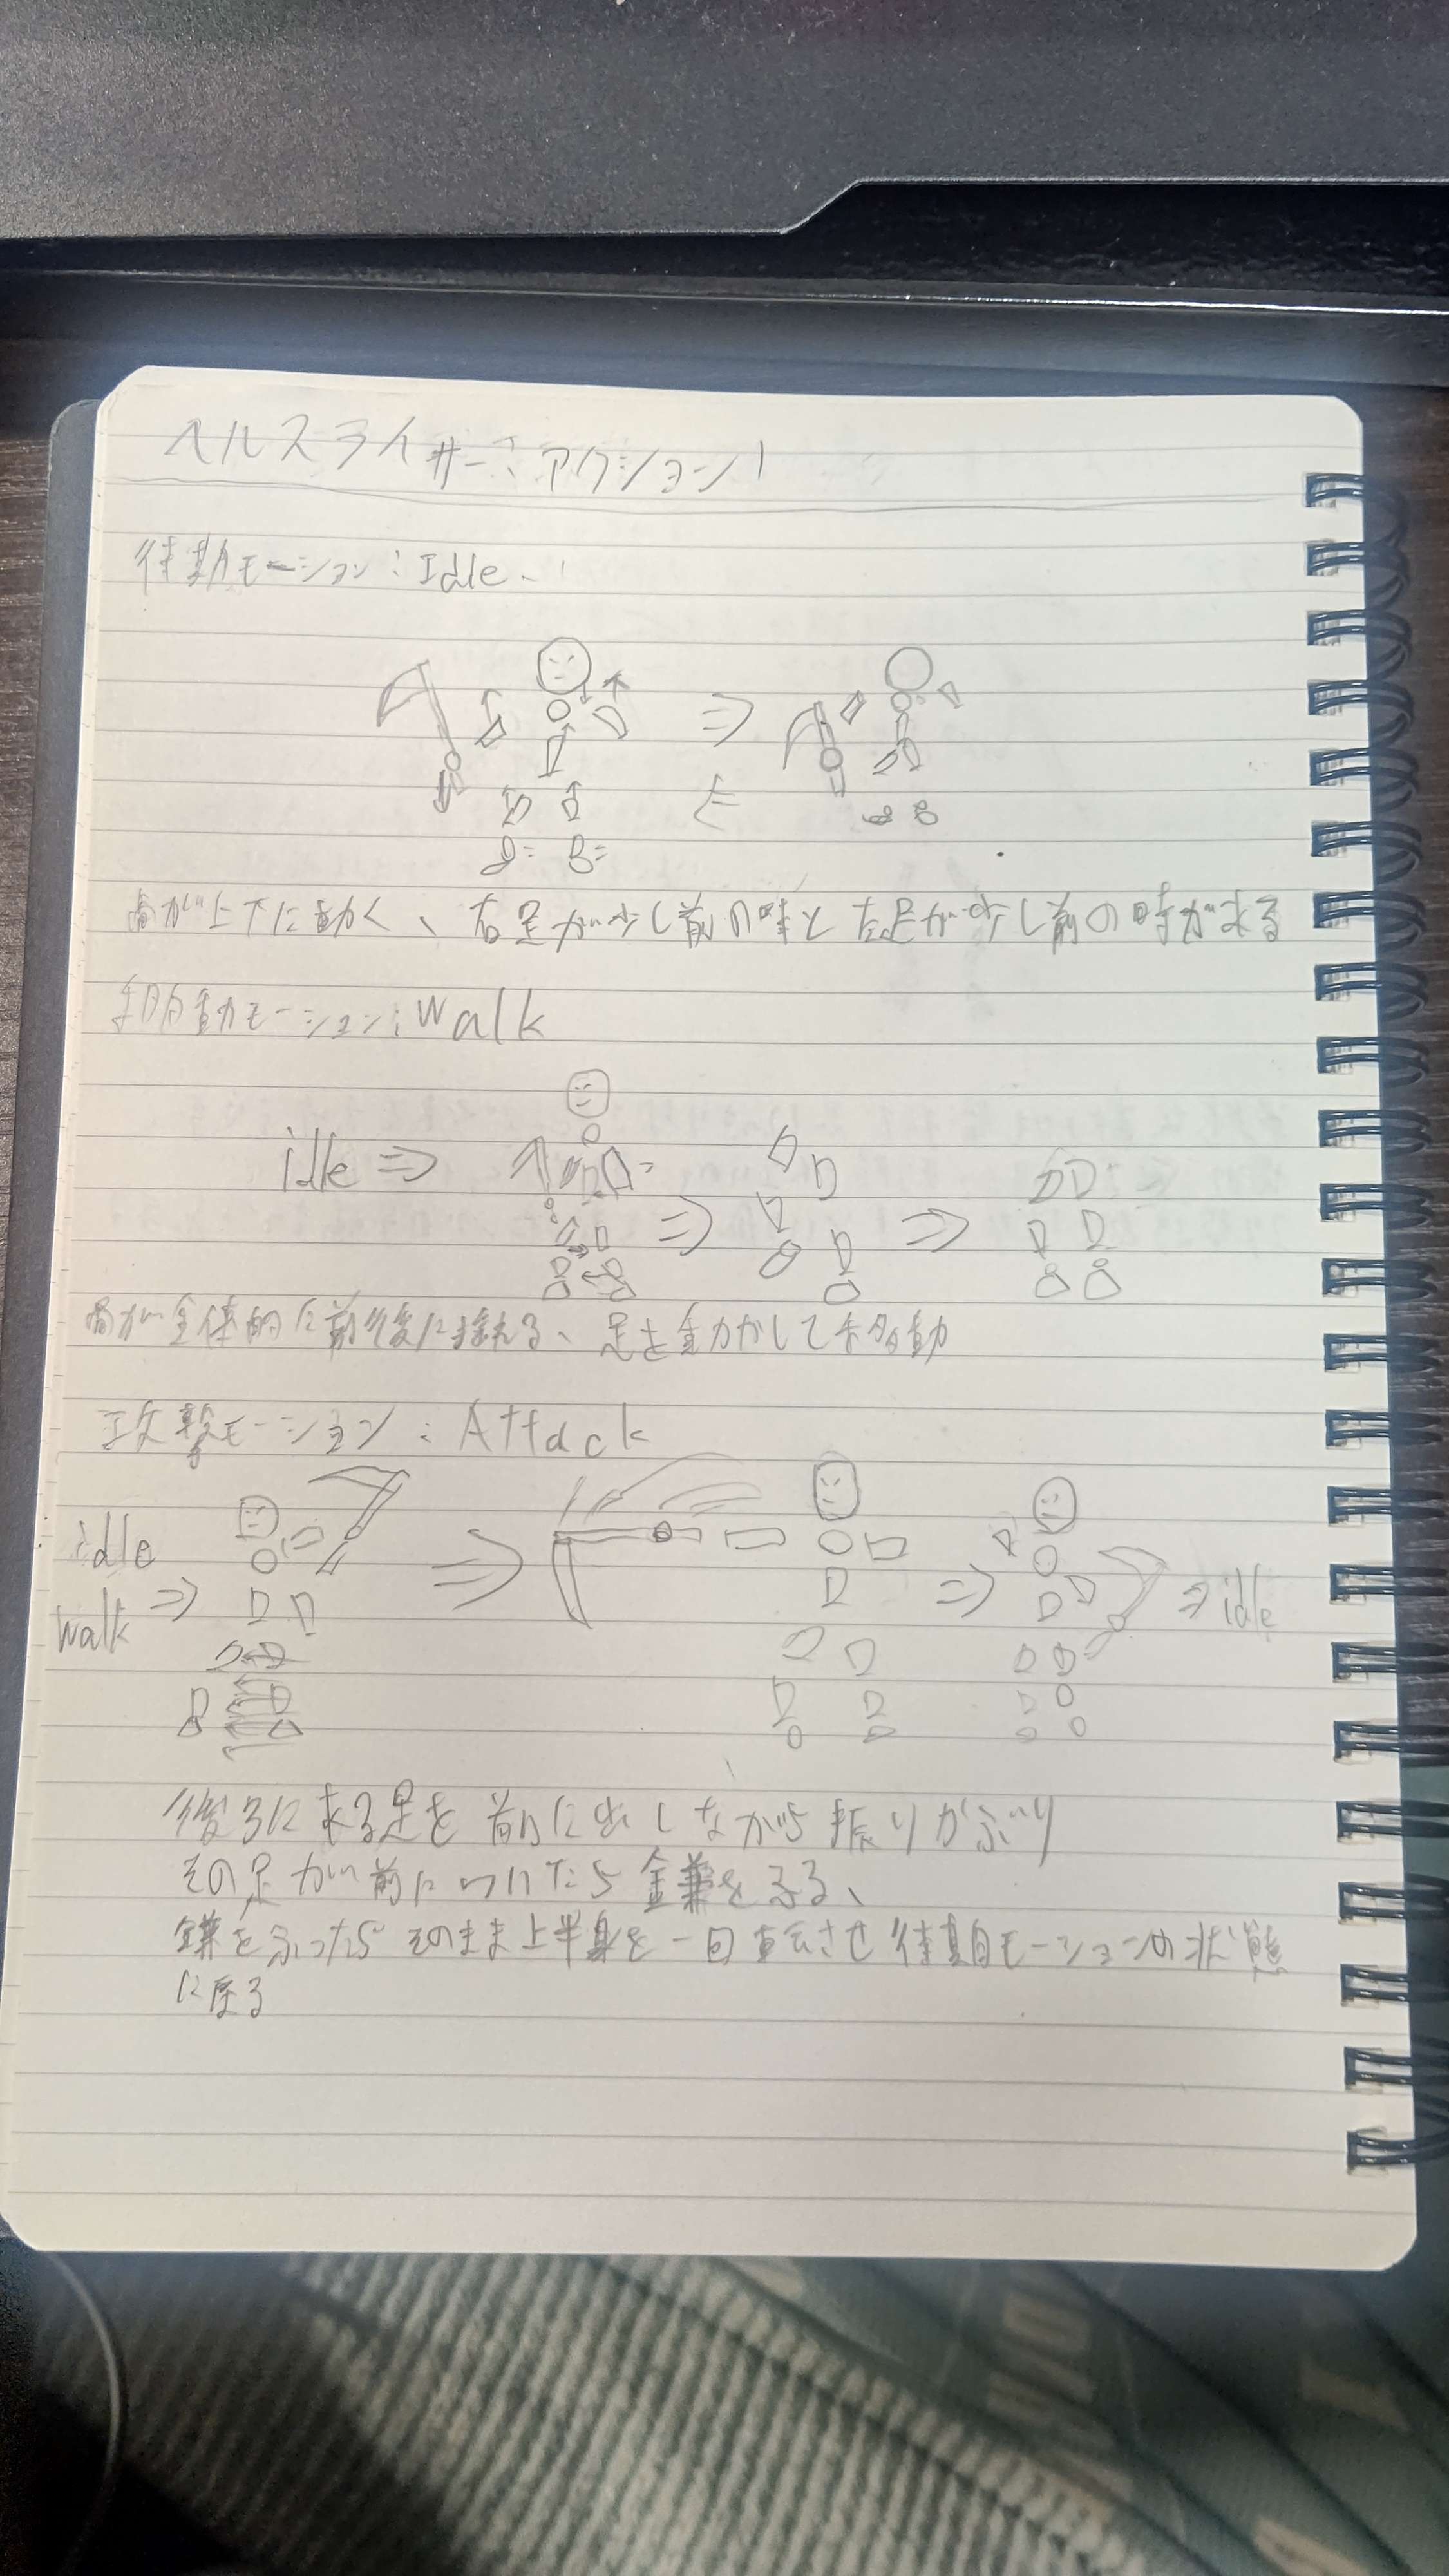 ヘルスライサー:アクション
待期モーション:Idle
肩が上下に動く、右足が少し前の時と左足が少し前の時が来る
移動モーション:walk
idle⇒
⇒
⇒
肩が全体的に前後に揺れる、足を動かして移動
攻撃モーション:Attack
idle
walk ⇒
⇒
⇒
⇒idle
後ろに来る足を前に出しながら振りかぶり
その足が前についたら鎌をふる、
鎌をふったらそのまま上半身を一回転させ待期モーションの状態
に戻る